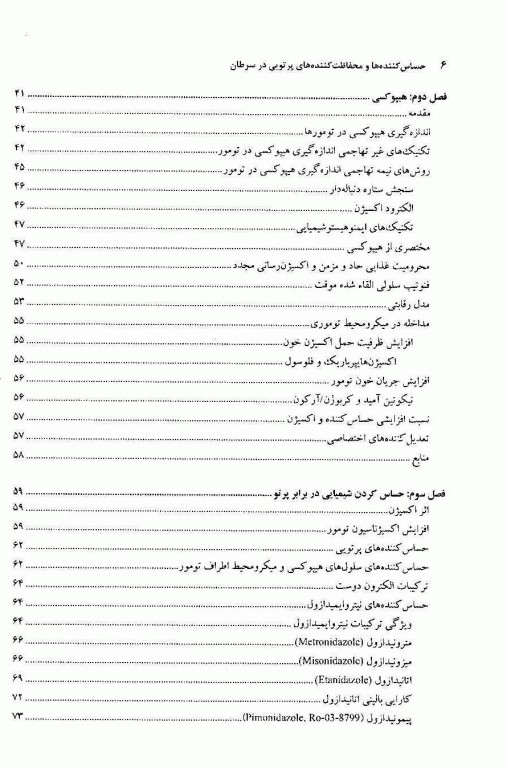 ۶ حساس‌کننده‌ها و محافظت‌کننده‌های پرتویی در سرطان
فصل دوم: هیپوکسی ۴۱
مقدمه ۴۱
اندازه‌گیری هیپوکسی در تومورها ۴۲
تکنیک‌های غیر تهاجمی اندازه‌گیری هیپوکسی در تومور ۴۲
روش‌های نیمه تهاجمی اندازه‌گیری هیپوکسی در تومور ۴۵
سنجش ستاره دنباله‌دار ۴۶
الکترود اکسیژن ۴۶
تکنیک‌های ایمنوهیستوشیمیایی ۴۷
مختصری از هیپوکسی ۴۷
محرومیت غذایی حاد و مزمن و اکسیژن‌رسانی مجدد ۵۰
فنوتیپ سلولی القاء شده موقت ۵۲
مدل رقابتی ۵۳
مداخله در میکرومحیط توموری ۵۵
افزایش ظرفیت حمل اکسیژن خون ۵۵
اکسیژن‌هایپرباریک و فلوسول ۵۵
افزایش جریان خون تومور ۵۶
نیکوتین آمید و کربوژن/آرکون ۵۶
نسبت افزایشی حساس‌کننده و اکسیژن ۵۷
تعدیل‌کننده‌های اختصاصی ۵۷
منابع ۵۸
فصل سوم: حساس کردن شیمیایی در برابر پرتو ۵۹
اثر اکسیژن ۵۹
افزایش اکسیژناسیون تومور ۵۹
حساس‌کننده‌های پرتویی ۶۲
حساس‌کننده‌های سلول‌های هیپوکسی و میکرومحیط اطراف تومور ۶۲
ترکیبات الکترون دوست ۶۴
حساس‌کننده‌های نیتروایمیدازول ۶۴
ویژگی ترکیبات نیتروایمیدازول ۶۴
مترونیدازول (Metronidazole) ۶۶
میزونیدازول (Misonidazole) ۶۶
اتانیدازول (Etanidazole) ۶۹
کارایی بالینی اتانیدازول ۷۲
پیمونیدازول (Pimonidazole, Ro-03-8799) ۷۳